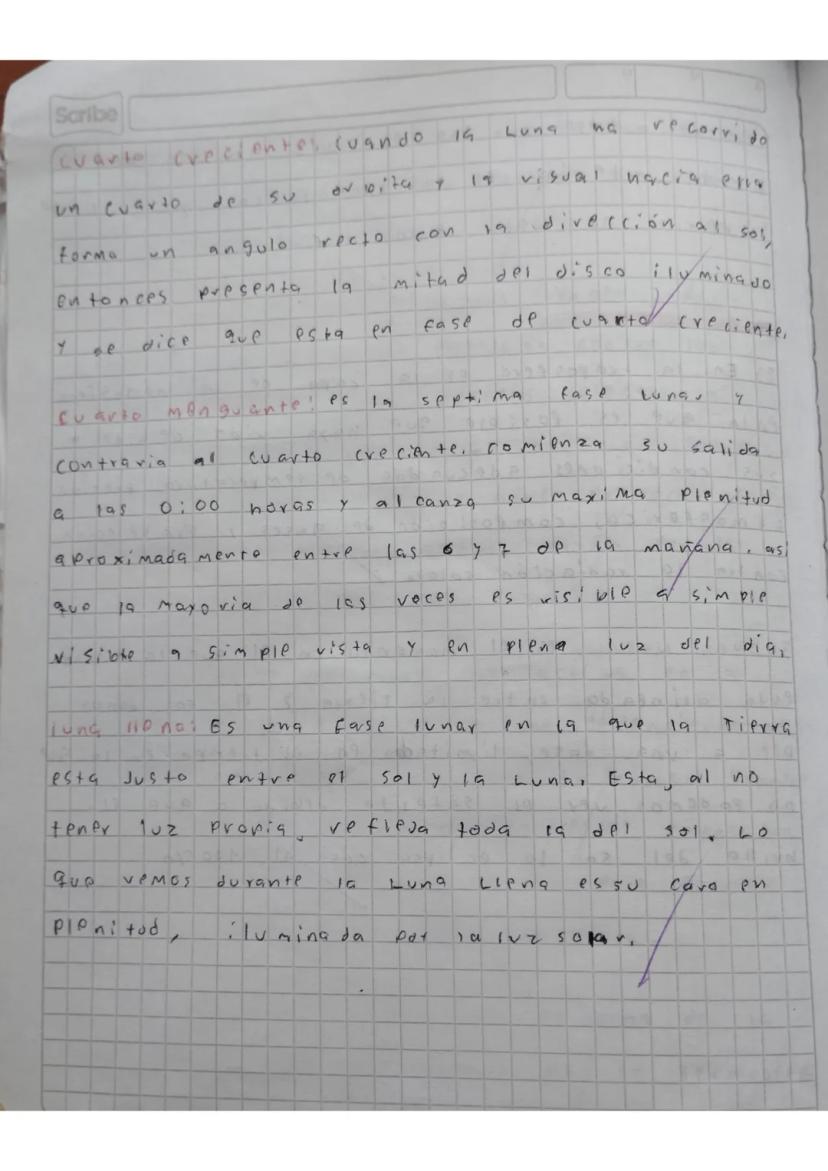 Scribe
cuarto crecientes cuando la Luna ha recorrido
un cuarto de su orbita y la visual hacia ella
forma un angulo recto con la dirección al sol,
entonces presenta la mitad del disco iluminado
y se dice que esta en fase de cuarto creciente.
cuarto menguante: es la septima fase Lunar y
contraria al cuarto creciente. comienza su salida
a las 0:00 horas y alcanza su maxima plenitud
aproximadamente entre las 6 y 7 de la mañana. asi
que la mayoria de las veces es visible a simple
visible a simple vista y en plena luz del dia.
luna llena: Es una fase lunar en la que la Tierra
esta Justo entre el sol y la Luna. Esta, al no
tener luz propia, refleja toda la del sol. Lo
que vemos durante la Luna Llena es su cara en
plenitud, iluminada por la luz solar.